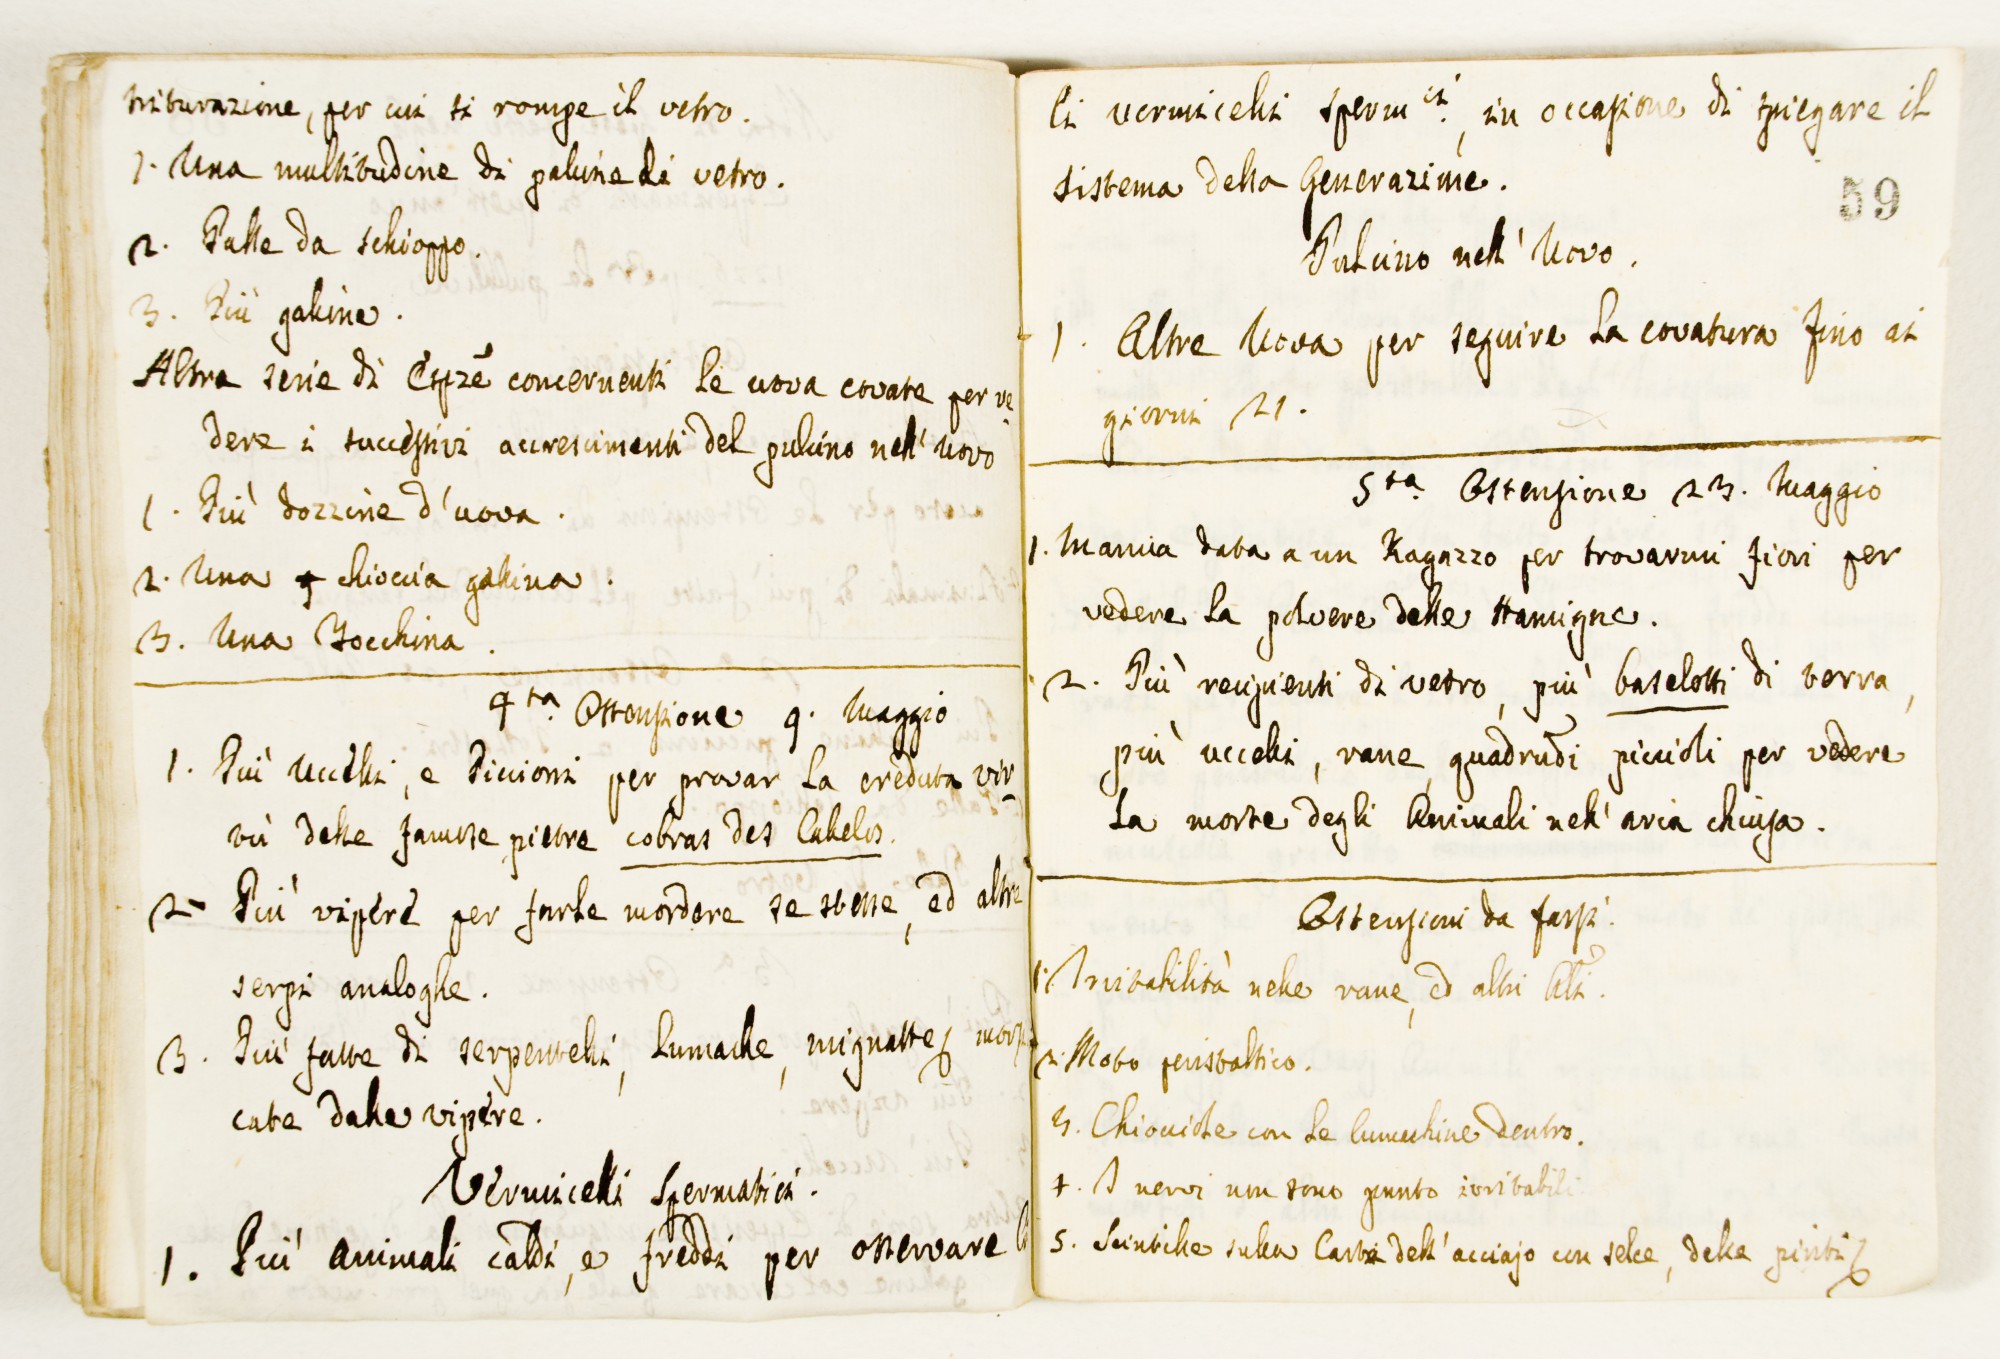 triturazione, per cui si rompe il vetro.
1. Una moltitudine di palline di vetro.
2. Palle da schioppo.
3. Più galline.
Altra serie di Espze concernenti le uova covate per ve
dere i successivi accrescimenti del pulcino nell'Uovo
1. Più dozzine d'uova.
2. Una chioccia gallina.
3. Una Tocchina.
4ta Ostensione 9. Maggio
1. Più Uccelli, e Piccioni per provar la creduta vir
tù delle famose pietre cobras des Cabelos.
2. Più vipere per farle mordere se stesse, ed altre
serpi analoghe.
3. Più fatte di serpentelli, lumache, mignatte &
cate dalle vipere.
Vermicelli Spermatici.
1. Più animali caldi, e freddi per osservare li
li vermicelli sperm.ci, in occasione di spiegare il
sistema della Generazione.
59
Pulcino nell'Uovo.
1. Altre Uova per seguire la covatura fino ai
giorni 21.
5ta Ostensione 23. Maggio
1. Mancia data a un Ragazzo per trovarmi fiori per
vedere la polvere delle stamigne.
2. Più recipienti di vetro, più baselotti di terra,
più uccelli, rane, quadrudi piccioli per vedere
la morte degli Animali nell'aria chiusa.
Ostensioni da farsi.
1. Irritabilità nelle rane, ed altri Ali.
2. Moto peristaltico.
3. Chiocciole con le lumachine dentro.
4. I nervi non sono punto irritabili
5. Scintille sulla Carta dell'acciajo con selce, delle piriti &